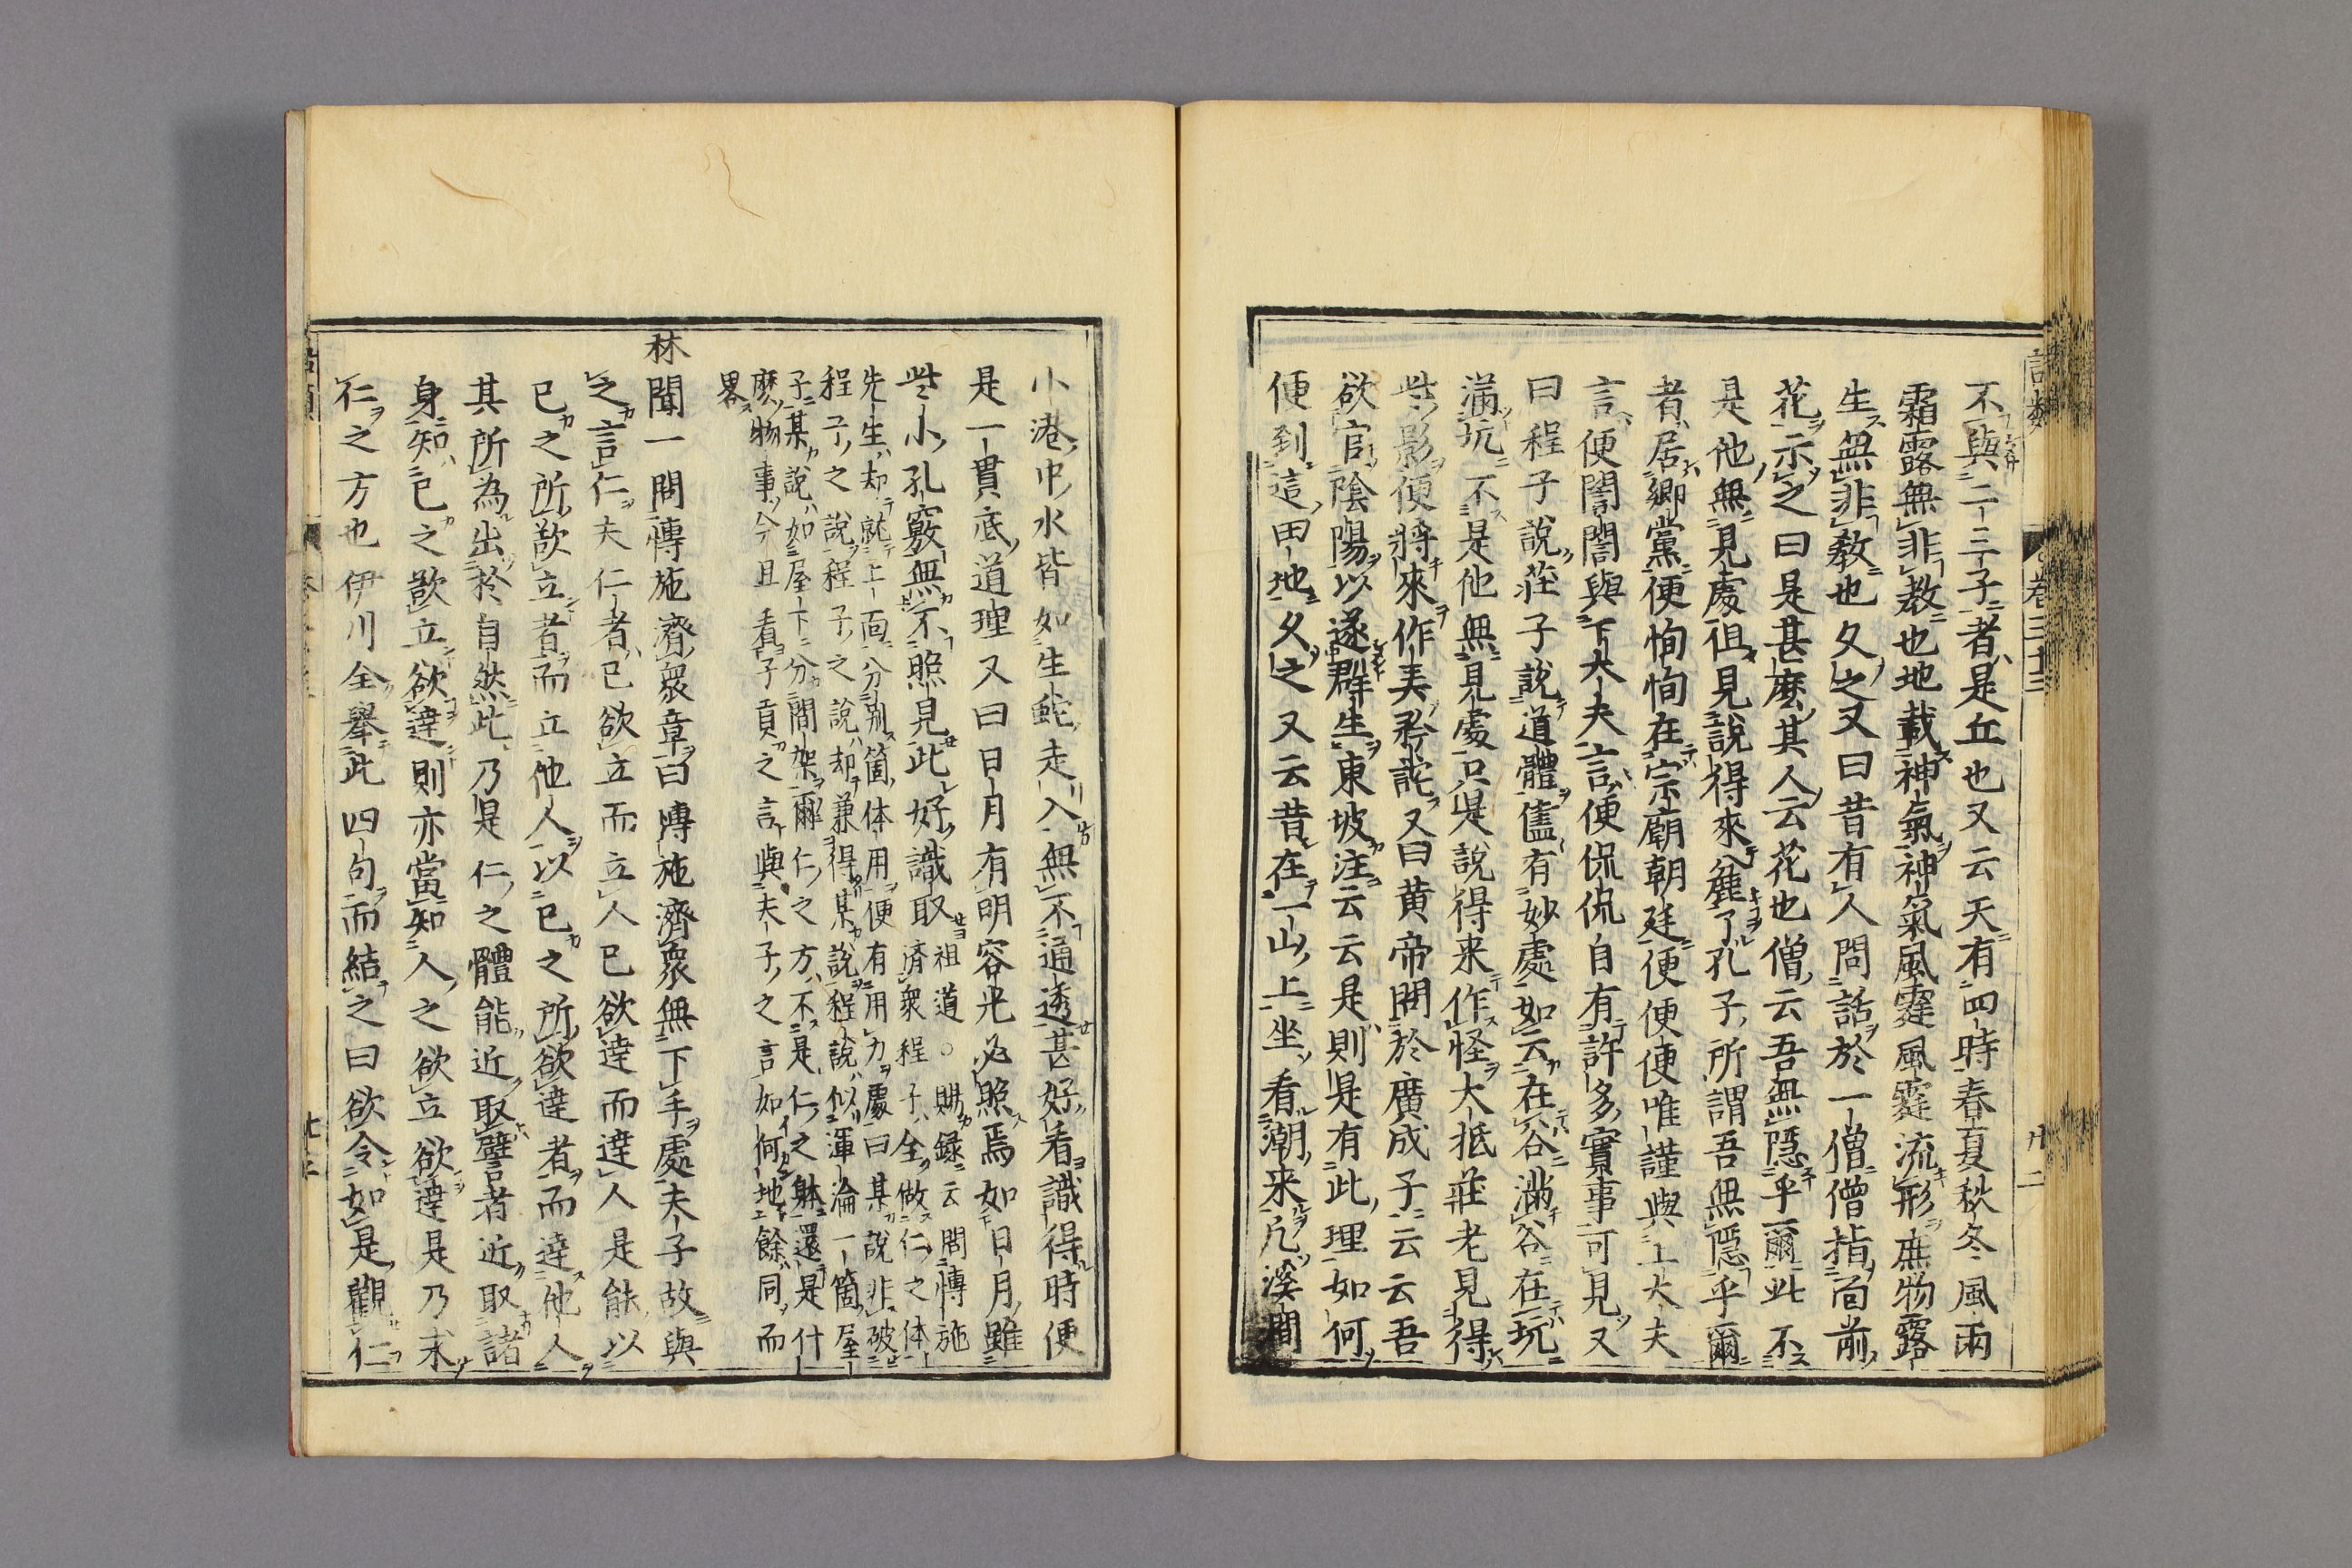 語類
卷三十三
廿二
不與二三子者是丘也又云天有四時春夏秋冬風雨
霜露無非教也地載神氣神氣風霆風霆流形庶物露
生無非教也久之又曰昔有人問話於一僧僧指面前
花示之曰是甚麼其人云花也僧云吾無隱乎爾此不
是他無見處但見說得來麄了孔子所謂吾無隱乎爾
者居鄉黨便恂恂在宗廟朝廷便便便唯謹與上大夫
言便誾誾與下大夫言便侃侃自有許多實事可見又
曰程子說莊子說道體儘有妙處如云在谷滿谷在坑
滿坑不是他無見處只是說得来作怪大抵莊老見得
些影便將來作弄矜詫又曰黄帝問於廣成子云云吾
欲官陰陽以遂群生東坡注云云是則是有此理如何
便到這田地久之又云昔在一山上坐看潮来凡溪澗
小港中水皆如生蛇走入無不通透甚好看識得時便
是一貫底道理又曰日月有明容光必照焉如日月雖
些小孔竅無不照見此好識取祖道○賜錄云問博施濟衆程子全做仁之体
先生却就上面分别箇体用便有用力處曰某說非破
程子之說程子之說却兼得某說程說似渾淪一箇屋
子某說如屋下分間架爾仁之方不是仁之躰還是什
麽物事今且看子貢之言與夫子之言如何地餘同而
畧
林聞一問博施濟衆章曰博施濟衆無下手處夫子故與
之言仁夫仁者己欲立而立人己欲達而達人是能以
己之所欲立者而立他人以己之所欲達者而達他人
其所為出於自然此乃是仁之體能近取譬者近取諸
身知己之欲立欲達則亦當知人之欲立欲達是乃求
仁之方也伊川全舉此四句而結之曰欲令如是觀仁